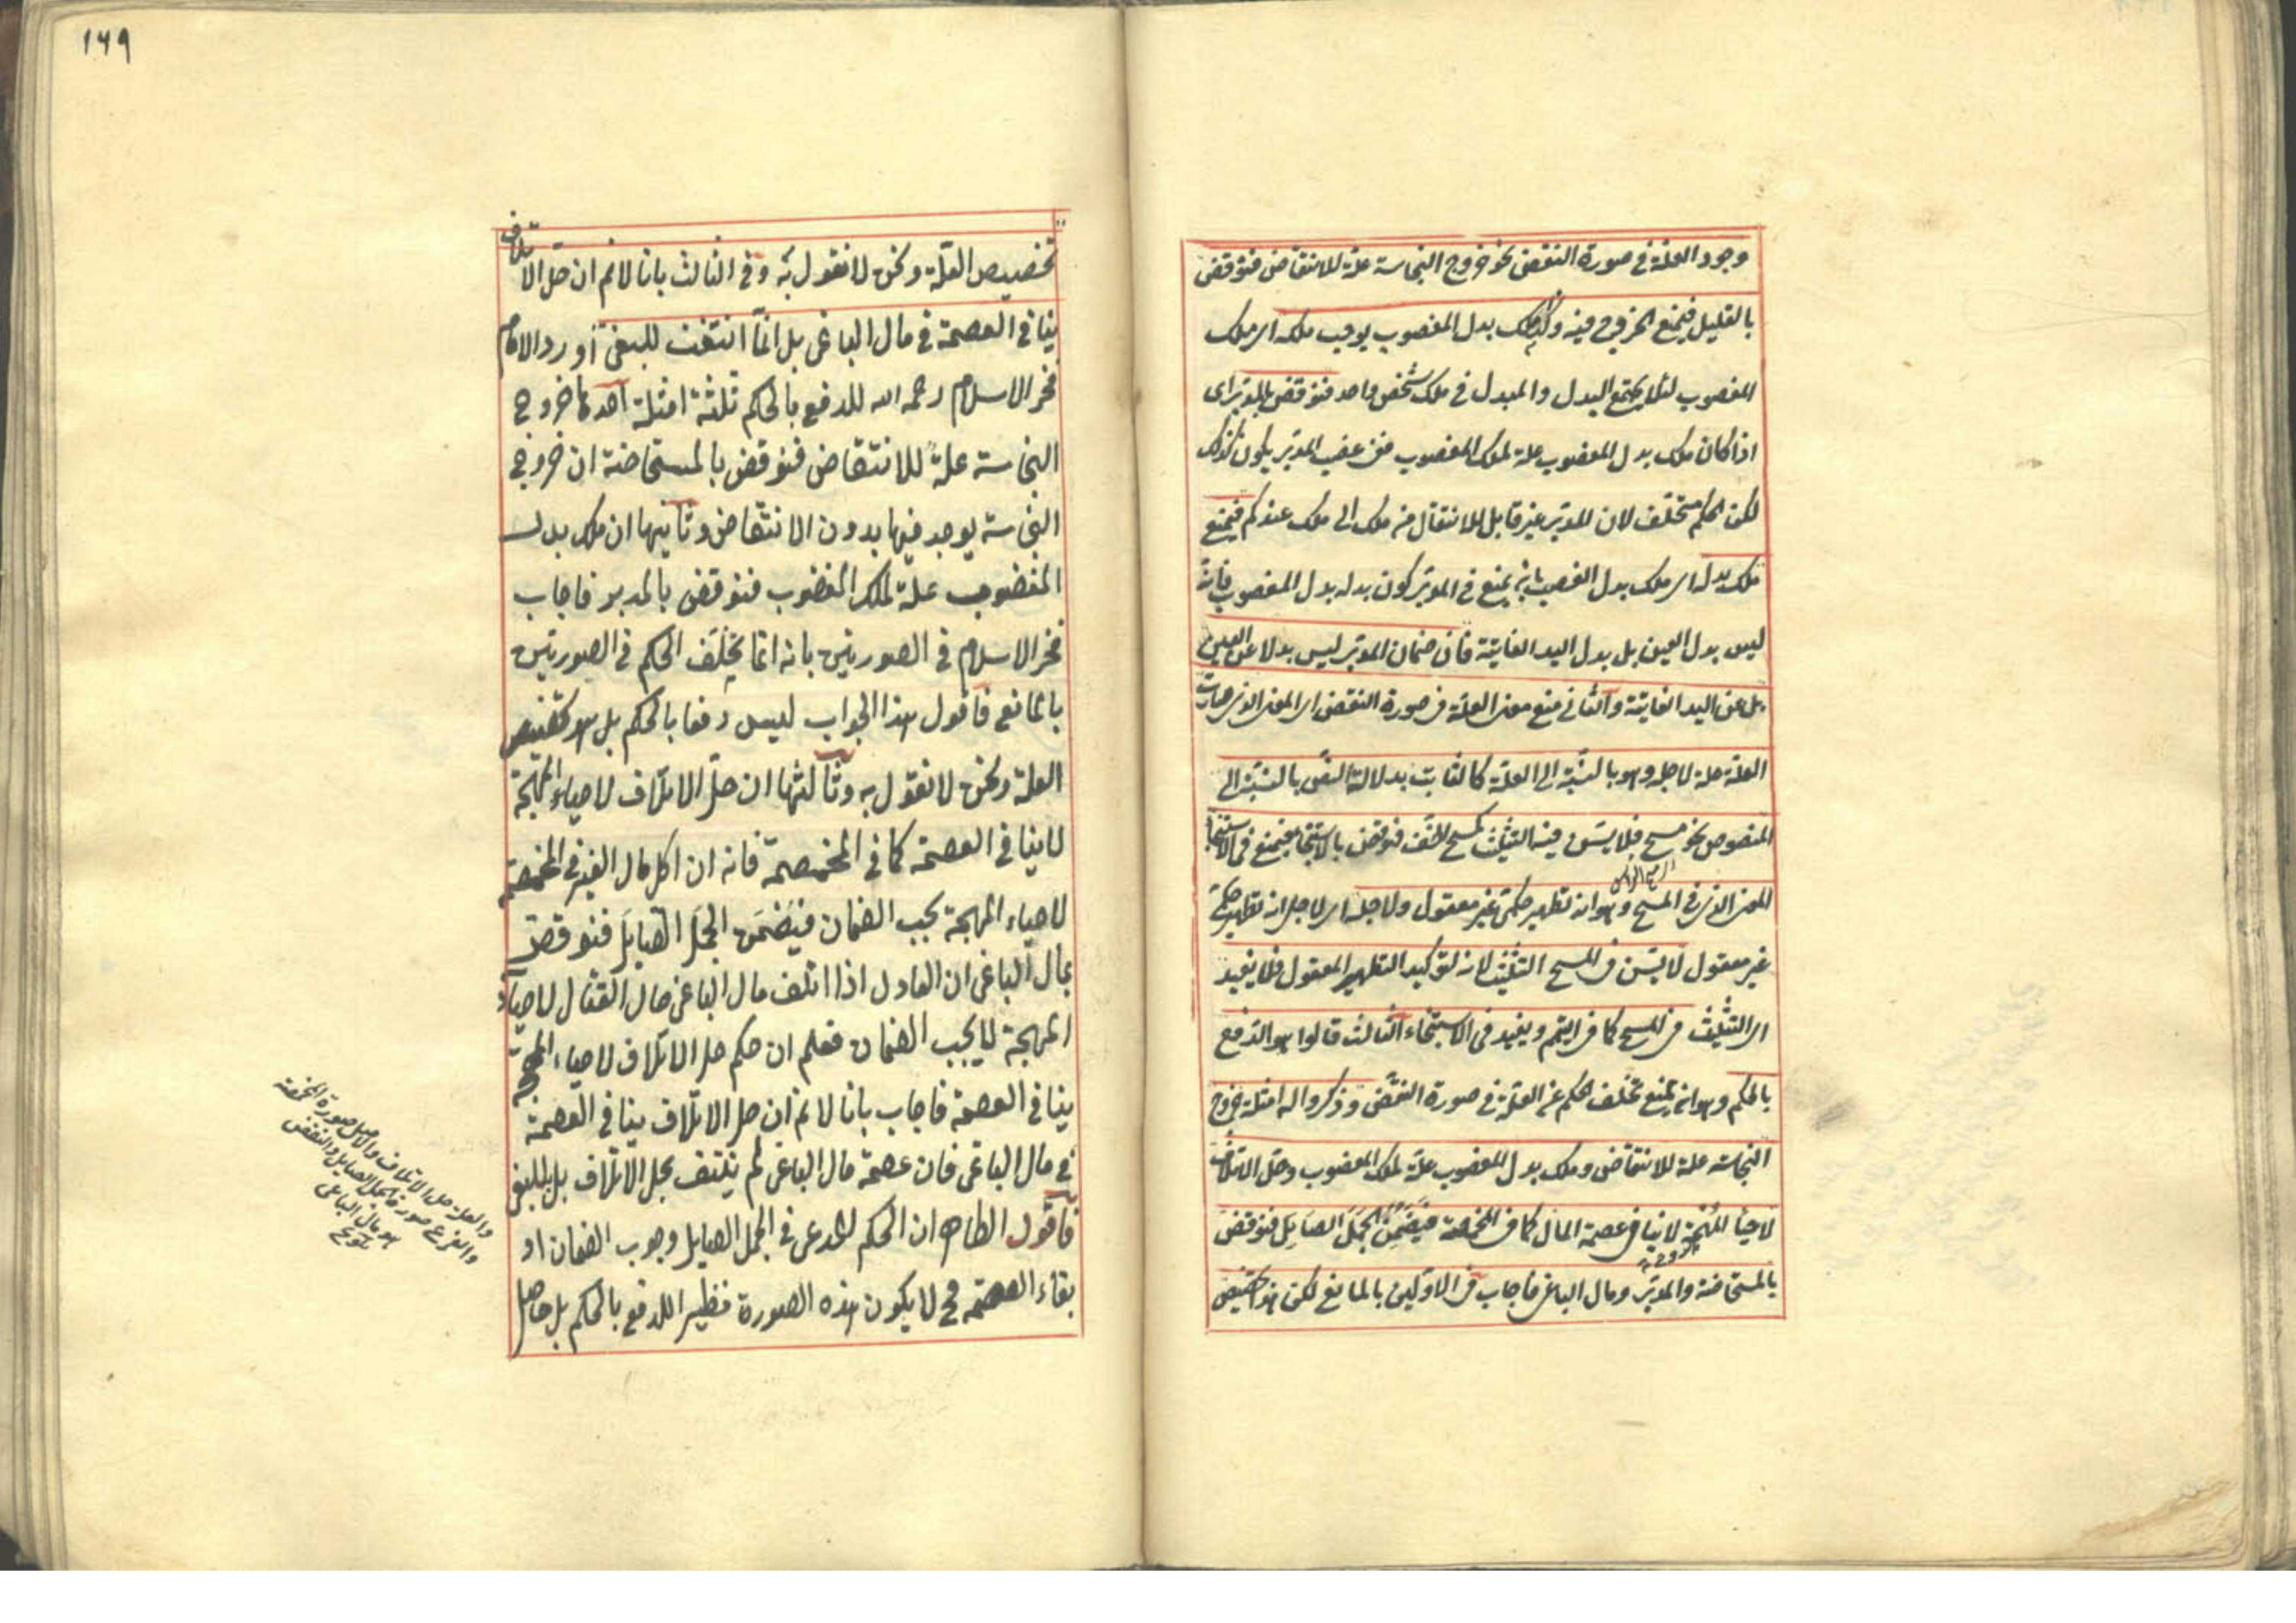 وجود العلة في صورة النقض نحو خروج النجاسة علة للانتقاض فنوقض
بالقليل فيمنع الخروج فيه وكذا ملك بدل المغصوب يوجب ملكه اى ملك
المغصوب لئلا يجتمع البدل والمبدل في ملك شخص واحد فنوقض بالمدبر اى
اذا كان ملك بدل المغصوب علة لملك المغصوب فمن غصب المدبر يكون كذلك
لكن الحكم متخلف لان المدبر غير قابل للانتقال من ملك الى ملك عندكم فيمنع
ملك بدله اى ملك بدل الغصب بانه يمنع في المدبر كون بدله بدل المغصوب فانه
ليس بدل العين بل بدل اليد الفايتة فان ضمان المدبر ليس بدلا عن العين
بل عن اليد الفايتة والثاني منع معنى العلة في صورة النقض اى المعنى الذى صارت
العلة علة لاجله وهو بالنسبة الى العلة كالثابت بدلالة النص بالنسبة الى
المنصوص نحو مسح فلا يسن فيه التثليث كمسح الخف فنوقض بالاستنجاء فيمنع في الاستنجاء
المعنى الذى في المسح وهو انه تطهير حكمى غير معقول ولاجله اى لاجل انه تطهير حكمى
غير معقول لا يسن في المسح التثليث لانه لتوكيد التطهير المعقول فلا يفيد
اى التثليث في المسح كما في التيمم ويفيد في الاستنجاء الثالث قالوا هو الدفع
بالحكم وهو انه يمنع تخلف الحكم عن العلة في صورة النقض وذكروا له امثلة خروج
النجاسة علة للانتقاض وملك بدل المغصوب علة لملك المغصوب وحل الاتلاف
لاحيا المهجة لا ينافى عصمة المال كما في المخمصة فيضمن الجمل الصايل فنوقض
بالمستحاضة والمدبر ومال الباغى فاجاب في الاوليين بالمانع لكن هذا تخصيص
١٦٩
تخصيص العلة ونحن لا نقول به وفى الثالث بانا لانم ان حل الاتلاف
ينافى العصمة في مال الباغى بل انما انتفت للبغى اورد الامام
فخر الاسلام رحمه الله للدفع بالحكم ثلثة امثلة احدها خروج
النجاسة علة للانتقاض فنوقض بالمستحاضة ان خروج
النجاسة يوجد فيها بدون الانتقاض وثانيها ان ملك بدل
المغصوب علة لملك المغصوب فنوقض بالمدبر فاجاب
فخر الاسلام في الصورتين بانه انما تخلف الحكم في الصورتين
بالمانع فاقول هذا الجواب ليس دفعا بالحكم بل هو تخصيص
العلة ونحن لا نقول به وثالثها ان حل الاتلاف لاحياء المهجة
لا ينافى العصمة كما في المخمصة فانه ان اكل مال الغير في المخمصة
لاحياء المهجة يجب الضمان فيضمن الجمل الصايل فنوقض
بمال الباغى ان العادل اذا اتلف مال الباغى حال القتال لاحياء
المهجة لا يجب الضمان فعلم ان حكم حل الاتلاف لاحياء المهجة
ينافى العصمة فاجاب بانا لانم ان حل الاتلاف ينافى العصمة
في مال الباغى فان عصمة مال الباغى لم ينتف بحل الاتلاف بل للبغى
فاقول الظاهر ان الحكم المدعى في الجمل الصايل وجوب الضمان او
بقاء العصمة فح لا يكون هذه الصورة نظيرا للدفع بالحكم بل حاصل
والعلة حل الاتلاف والاصل صورة المخمصة
والفرع صورة الجمل الصايل والنقض
هو مال الباغى
تلويح